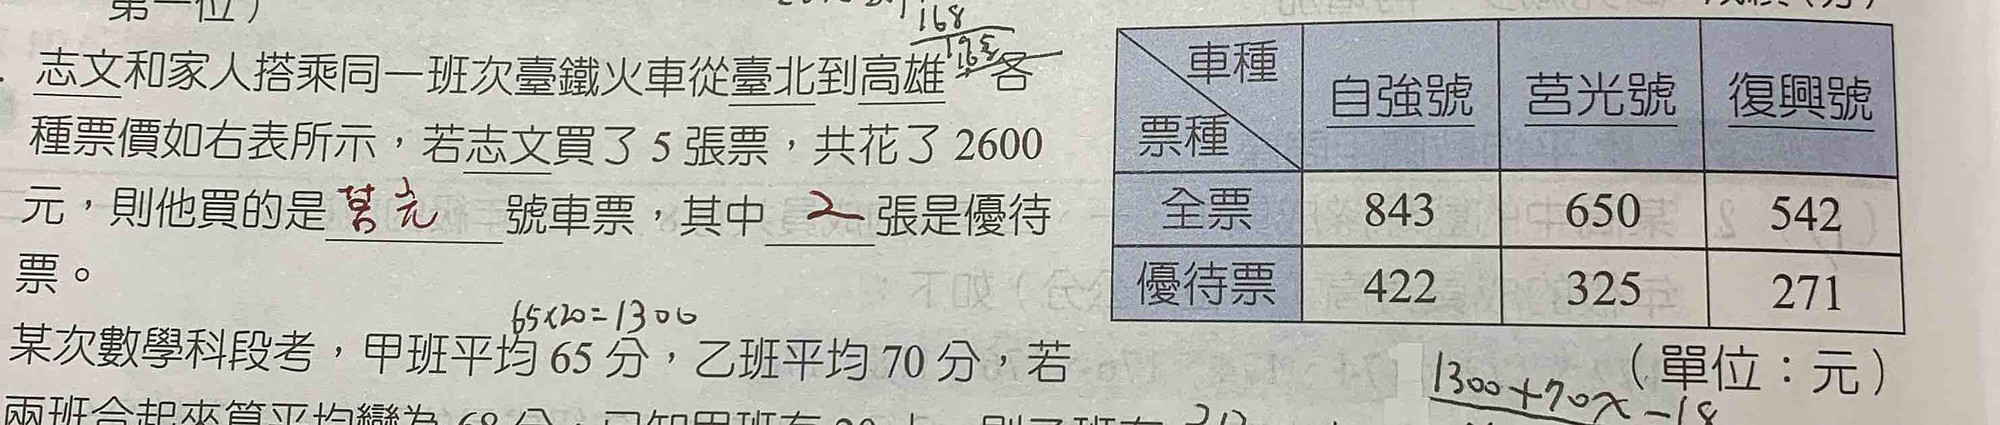 第一位）
168
195
165
志文和家人搭乘同一班次臺鐵火車從臺北到高雄，各
種票價如右表所示，若志文買了5張票，共花了2600
元，則他買的是莒光號車票，其中2張是優待
票。
車種 自強號 莒光號 復興號
票種
全票 843 650 542
優待票 422 325 271
（單位：元）
65×20=1300
某次數學科段考，甲班平均65分，乙班平均70分，若
1300+70x
兩班合起來算平均變為68分，已知甲班有20人，則乙班有